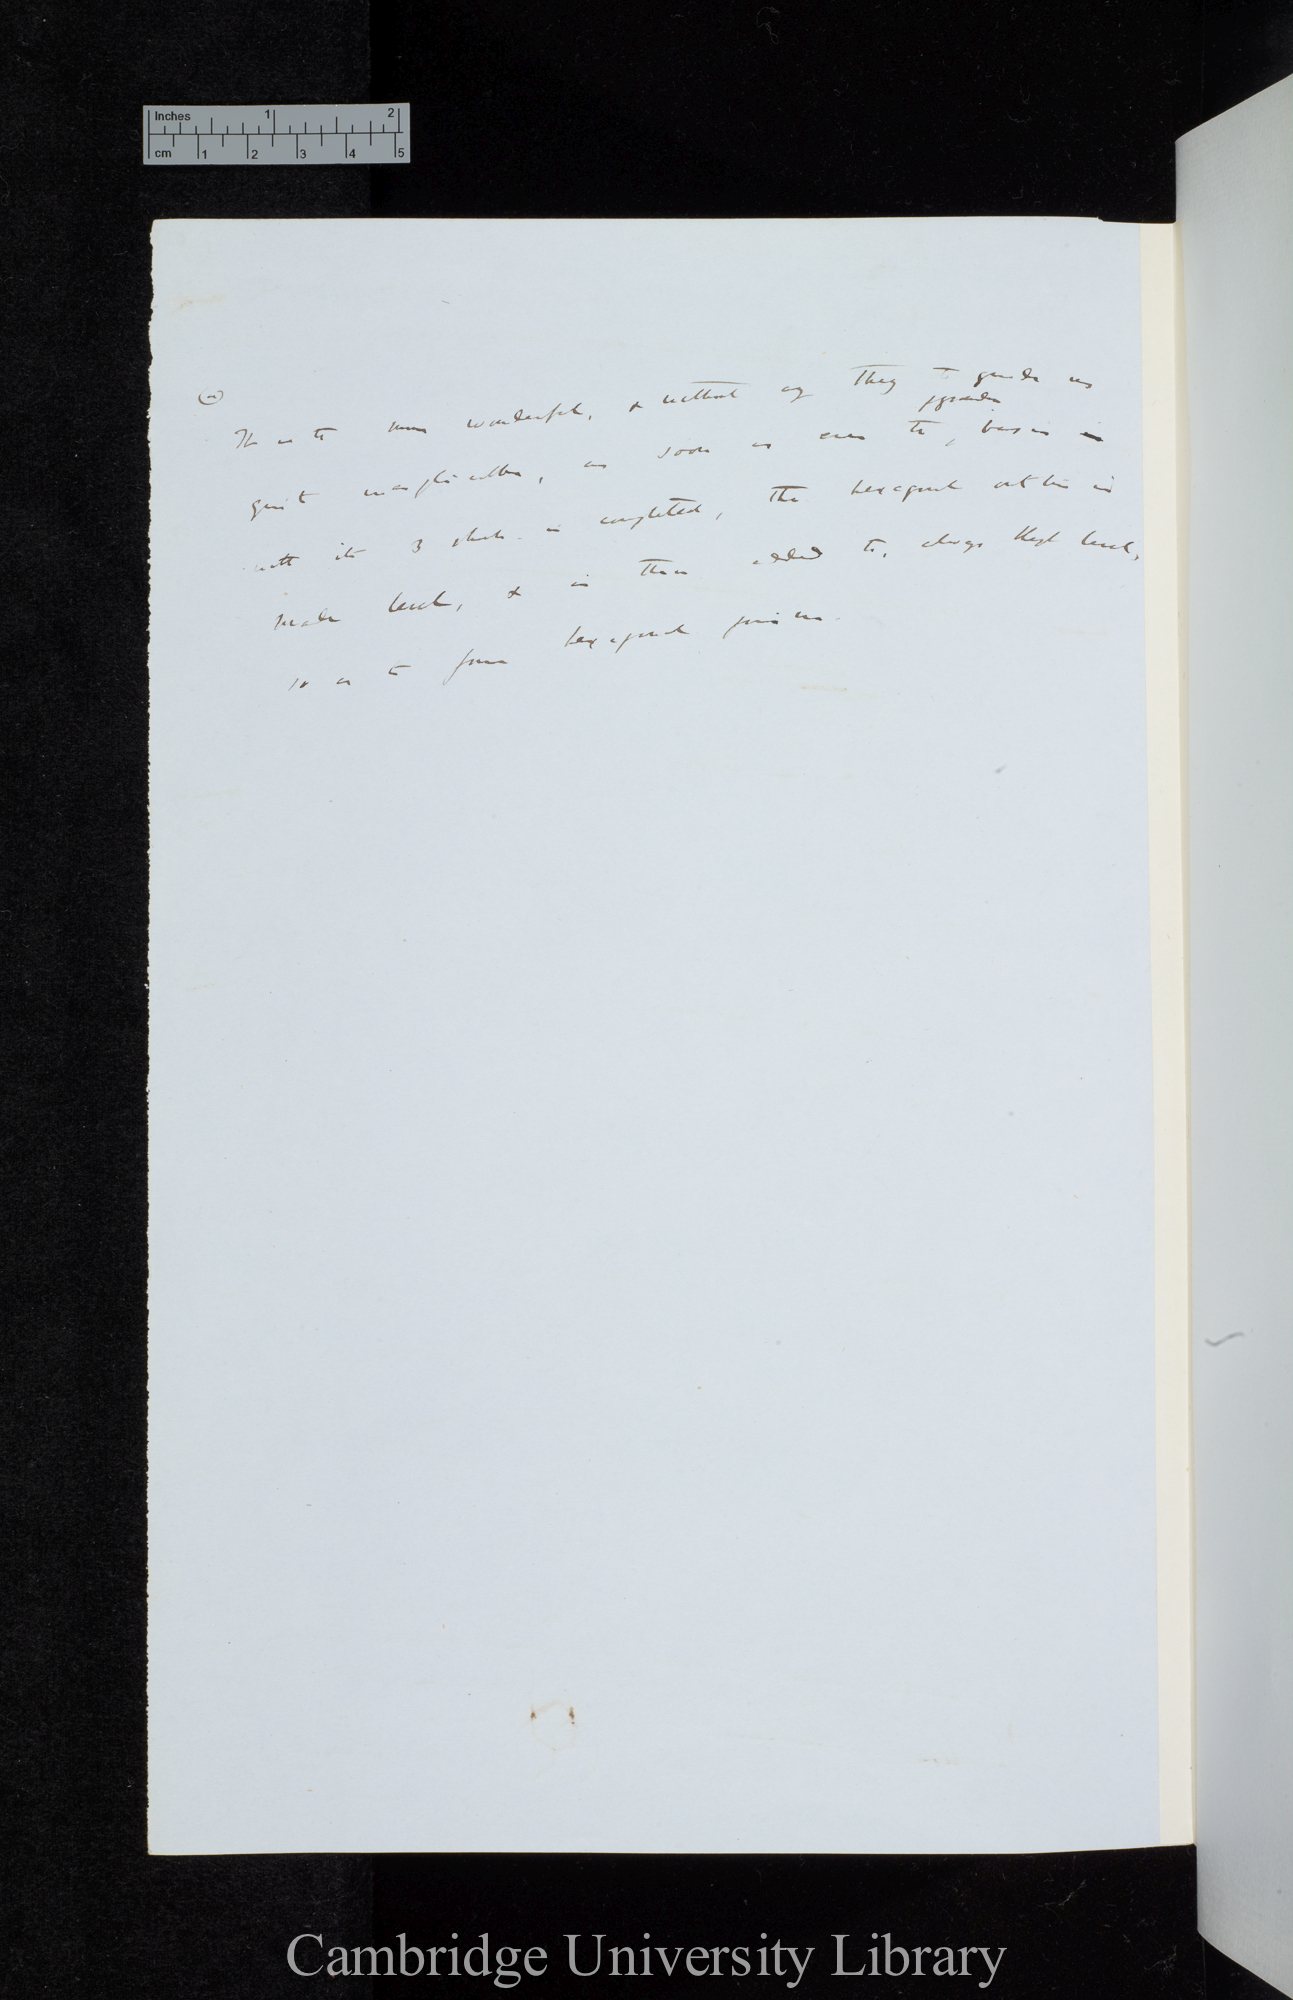 Inches 1 2
cm 1 2 3 4 5
(a)
It is to me wonderful, & without any theory to guide us
pyramidal
quite inexplicable, as soon as ever the basis
with its 3 is completed, the hexagonal outline is
made level, & is then added to, always kept level,
so as to form hexagonal prism
Cambridge University Library